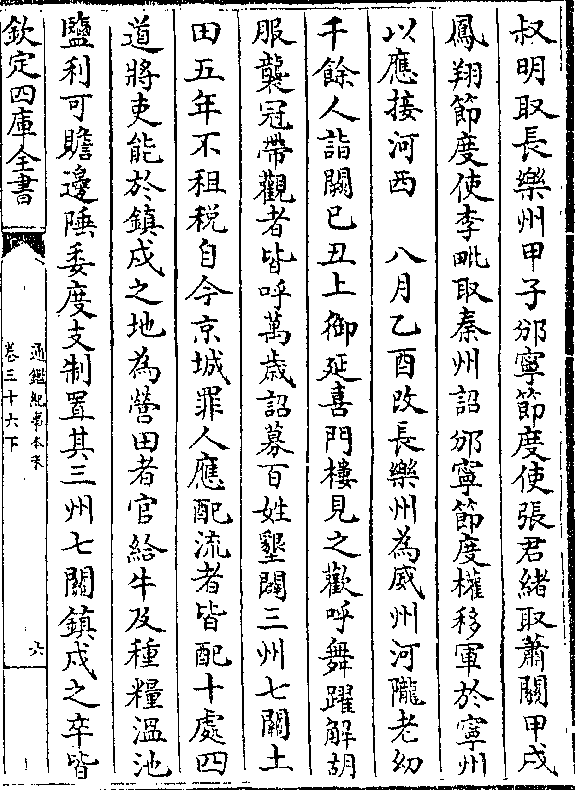 叔明取長樂州甲子邠寧節度使張君緒取蕭關甲戌
鳳翔節度使李玭取秦州詔邠寧節度權移軍於寧州
以應接河西　八月乙酉改長樂州為威州河隴老幼
千餘人詣闕己丑上御延喜門樓見之歡呼舞躍解胡
服襲冠帶觀者皆呼萬歲詔募百姓墾闢三州七關土
田五年不租稅自今京城罪人應配流者皆配十處四
道將吏能於鎮戍之地為營田者官給牛及種糧溫池
鹽利可贍邊陲委度支制置其三州七關鎮戍之卒皆
欽定四庫全書
通鑑紀事本末
卷三十六下
六